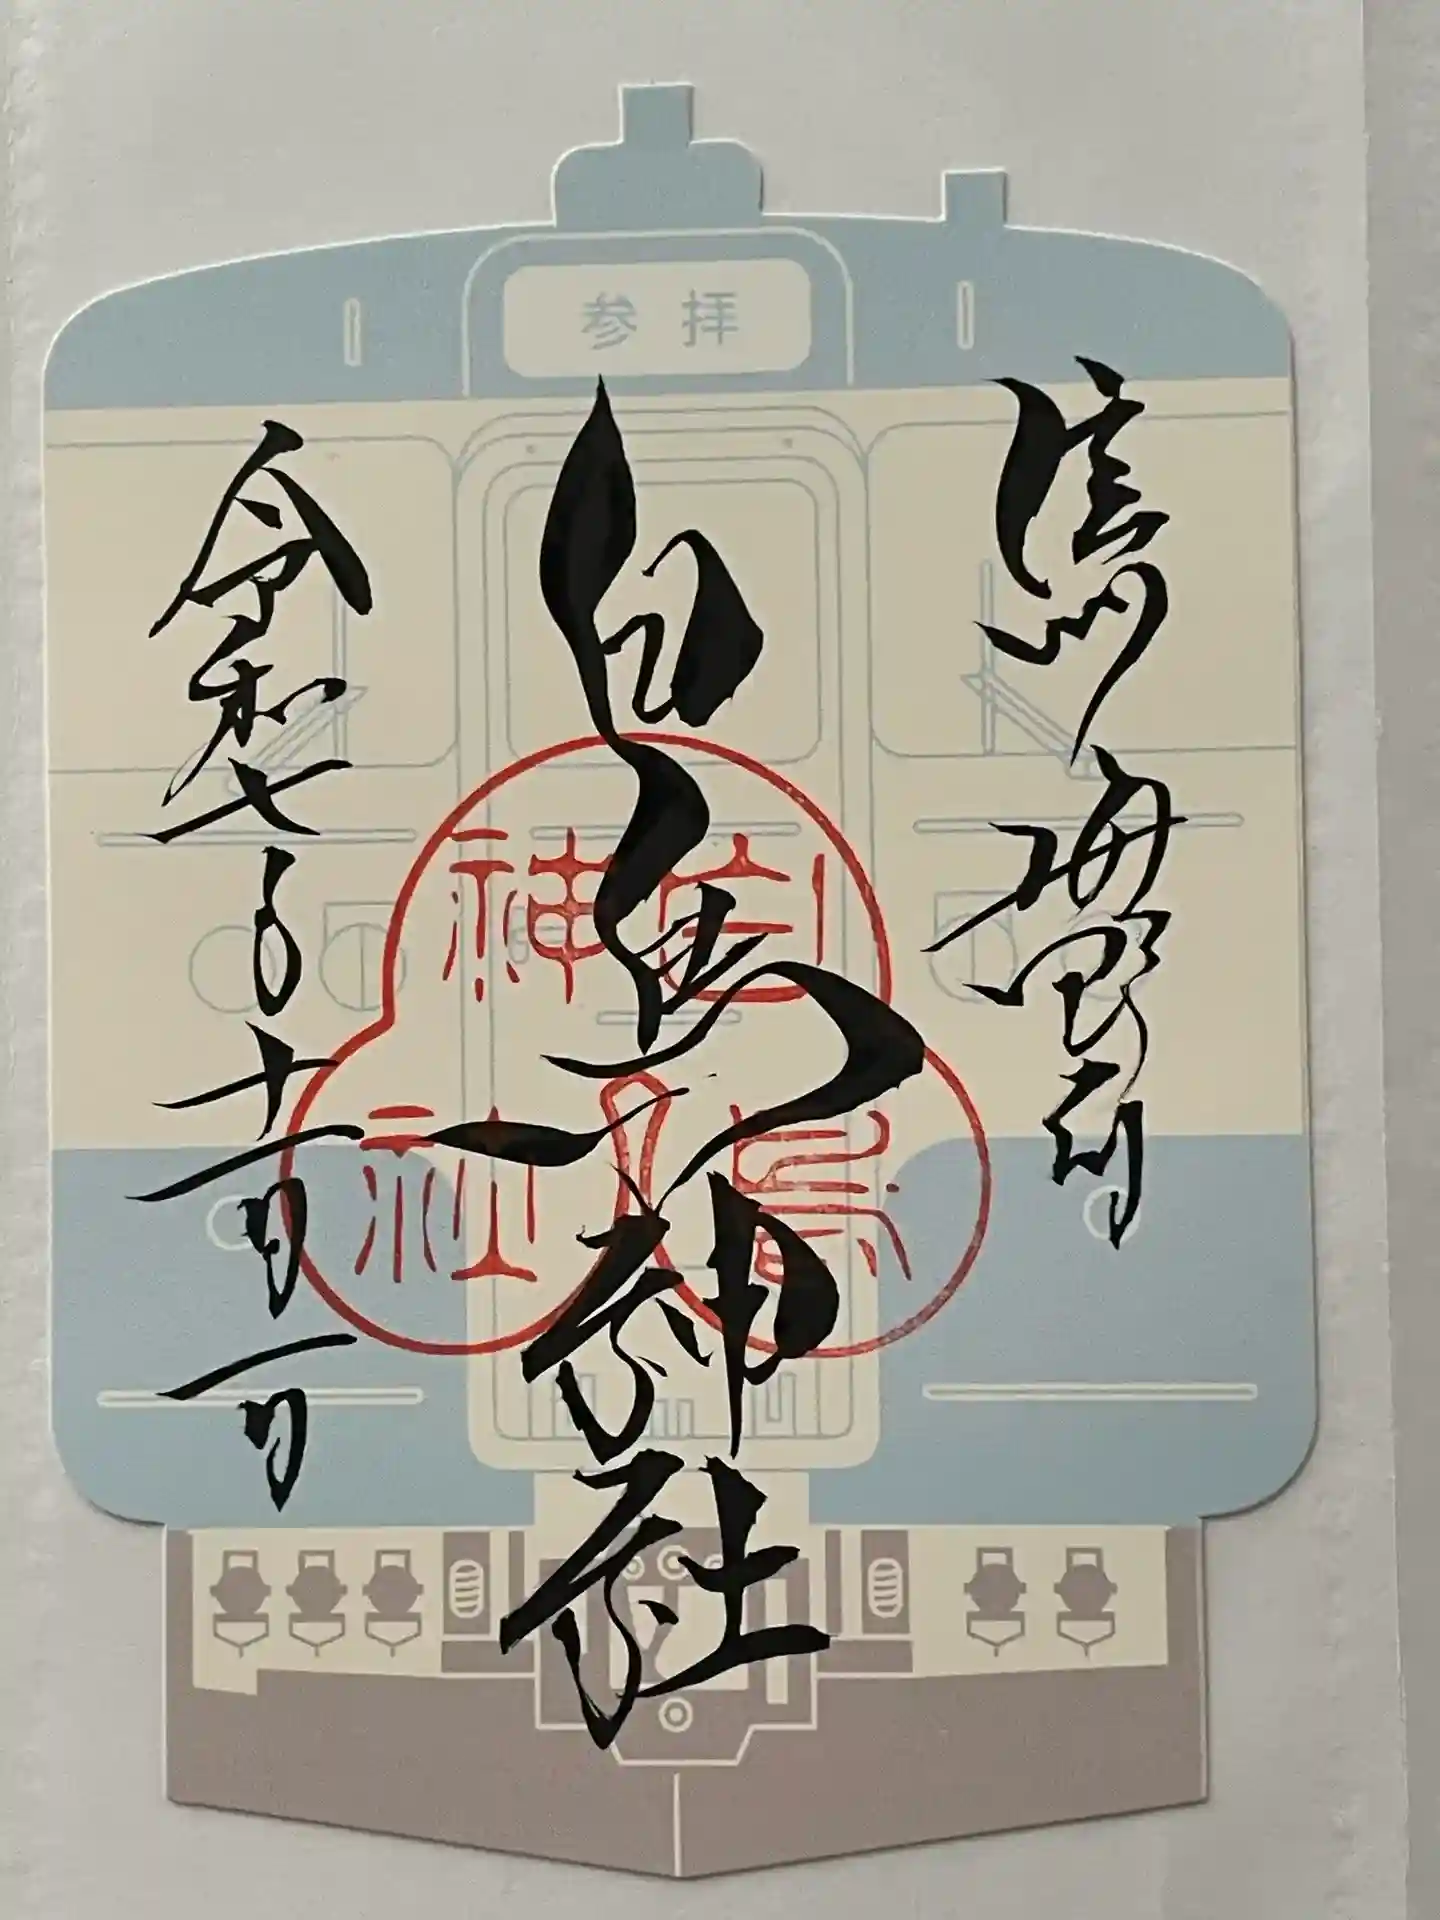 参拝
信州
白馬神社
令和七年十一月一日
白馬
神社